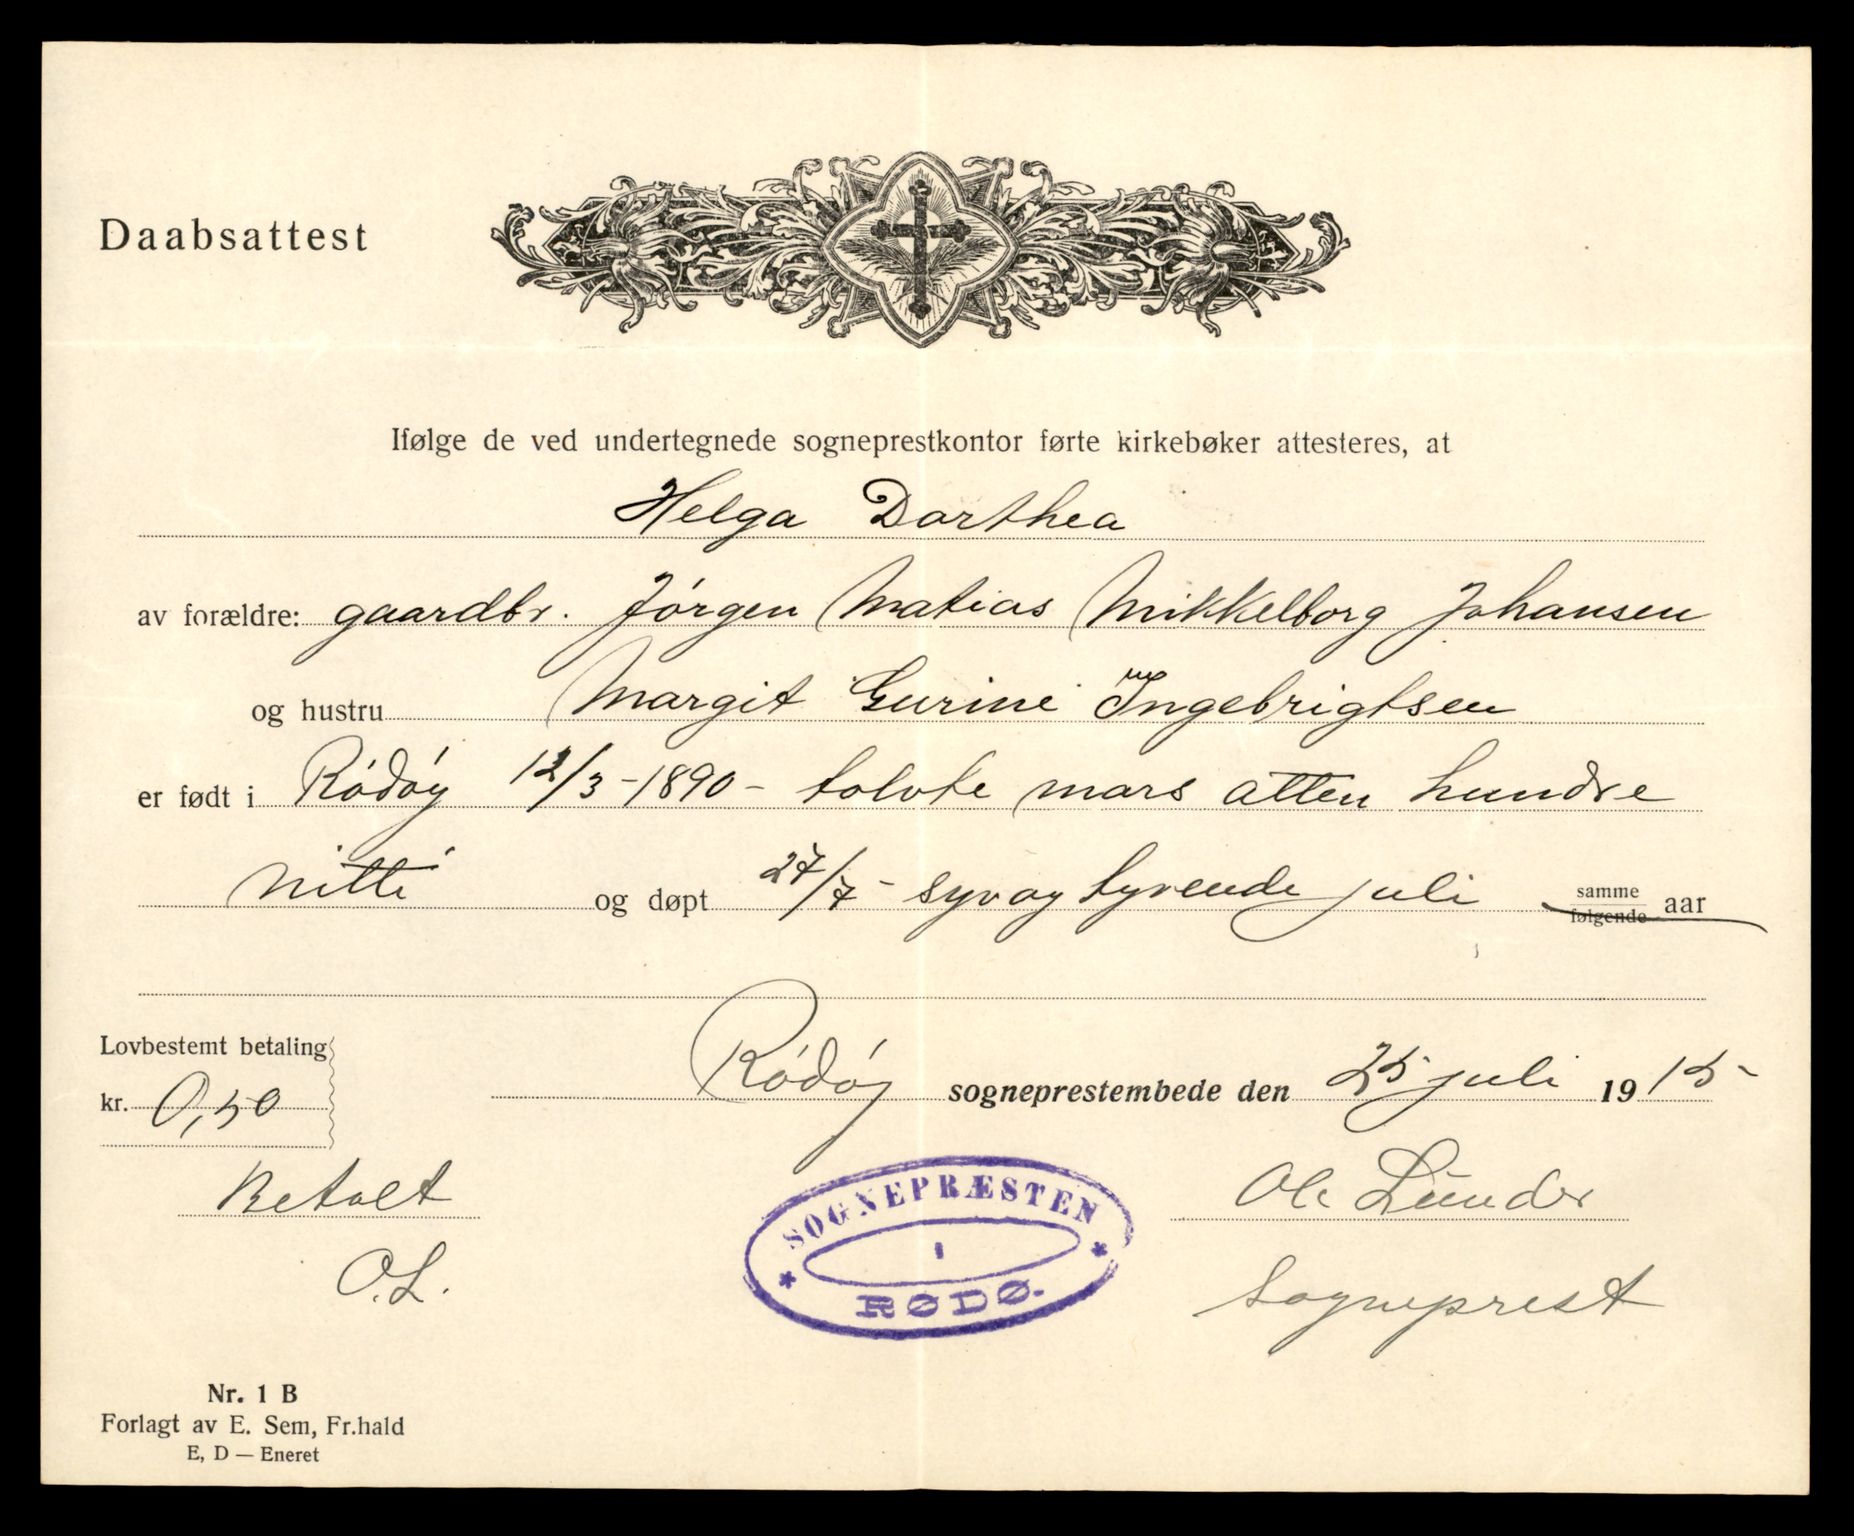 Daabsattest
Ifølge de ved undertegnede sogneprestkontor førte kirkebøker attesteres, at
Helga Dorthea
av forældre: gaardbr. Jørgen Matias Mikkelborg Johansen
og hustru Margit Gurine Ingebrigtsen
er født i Rødøy 12/3 - 1890 - tolvte mars atten hundre
nitti og døpt 27/7 - syv og tyvende juli samme følgende aar
Lovbestemt betaling
kr. 0,50
Rødøy sogneprestembede den 25 juli 1915 -
Betalt
O.L.
SOGNEPRÆSTEN
I
RØDØ.
Ole Lunder
Sogneprest
Nr. 1 B
Forlagt av E. Sem, Fr.hald
E, D — Eneret